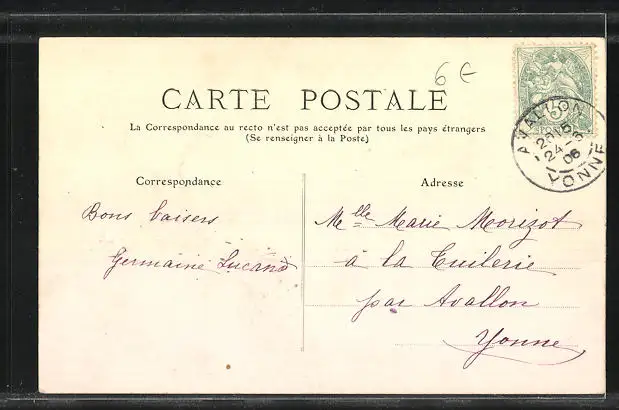 6 €
CARTE POSTALE
La Correspondance au recto n'est pas acceptée par tous les pays étrangers
(Se renseigner à la Poste)
AVALLON
24 -8
06
YONNE
Correspondance
Bons baisers
Germaine Lucand
Adresse
Mlle Marie Morizot
à la Tuilerie
par Avallon
Yonne